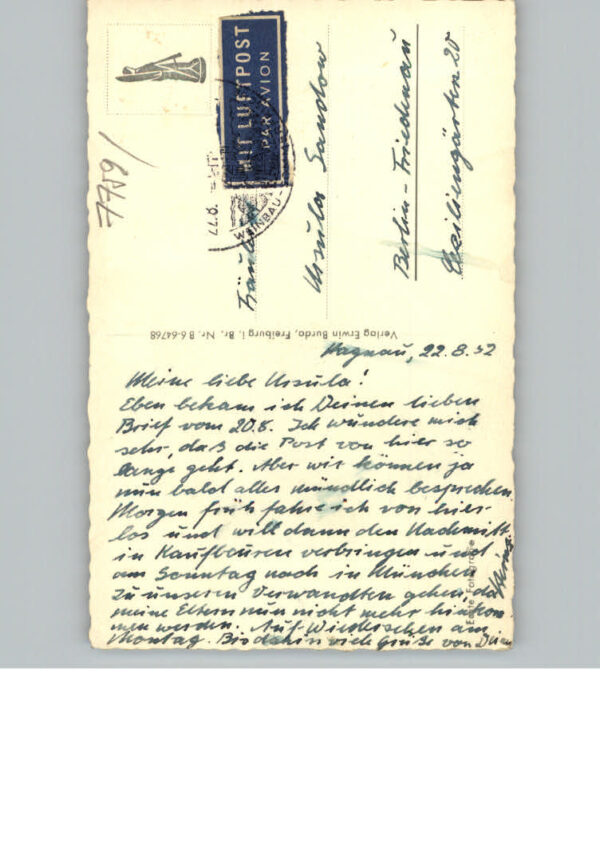 MIT LUFTPOST
PAR AVION
22.8.
WEINBAU-
7759/
Fräulein
Ursula Sandow
Berlin-Friedenau
Ceciliengärten 20
Verlag Erwin Burda, Freiburg i. Br. Nr. B 6-64768
Hagnau, 22.8.52
Meine liebe Ursula!
Eben bekam ich Deinen lieben
Brief vom 20.8. Ich wundere mich
sehr, daß die Post von hier so
lange geht. Aber wir können ja
nun bald alles mündlich besprechen.
Morgen früh fahre ich von hier
los und will dann den Nachmitt.
in Kaufbeuren verbringen und
am Sonntag noch in München
zu unseren Verwandten gehen, da
meine Eltern nun nicht mehr hinkom
men werden. Auf Wiedersehen am
Montag. Bis dahin viele Grüße von Deinem
Echte Fotografie